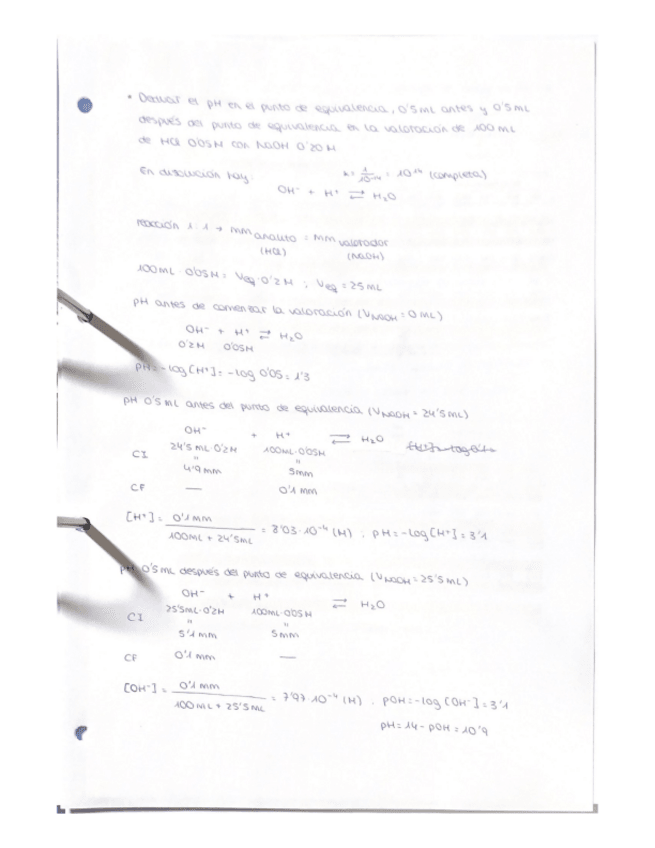 • Derivar el pH en el punto de equivalencia, 0'5 mL antes y 0'5 mL
después del punto de equivalencia en la valoración de 100 mL
de HCl 0'05M con NaOH 0'20 M
En disolución hay: k = 1/10⁻¹⁴ = 10¹⁴ (completa)
OH⁻ + H⁺ ⇄ H₂O
reacción 1:1 → mm analito = mm valorador
(HCl) (NaOH)
100 mL · 0'05M = Veq · 0'2 M ; Veq = 25 mL
pH antes de comenzar la valoración (VNaOH = 0 mL)
OH⁻ + H⁺ ⇄ H₂O
0'2M 0'05M
pH = -log [H⁺] = -log 0'05 = 1'3
pH 0'5 mL antes del punto de equivalencia (VNaOH = 24'5 mL)
OH⁻ + H⁺ ⇄ H₂O
CI 24'5 mL · 0'2M 100mL · 0'05M
" "
4'9 mm 5mm
CF — 0'1 mm
[H⁺] = 0'1 mm / 100mL + 24'5mL = 8'03 · 10⁻⁴ (M) ; pH = -log [H⁺] = 3'1
pH 0'5 mL después del punto de equivalencia (VNaOH = 25'5 mL)
OH⁻ + H⁺ ⇄ H₂O
CI 25'5mL · 0'2M 100mL · 0'05M
" "
5'1 mm 5mm
CF 0'1 mm —
[OH⁻] = 0'1 mm / 100mL + 25'5mL = 7'97 · 10⁻⁴ (M) . pOH = -log [OH⁻] = 3'1
pH = 14 - pOH = 10'9